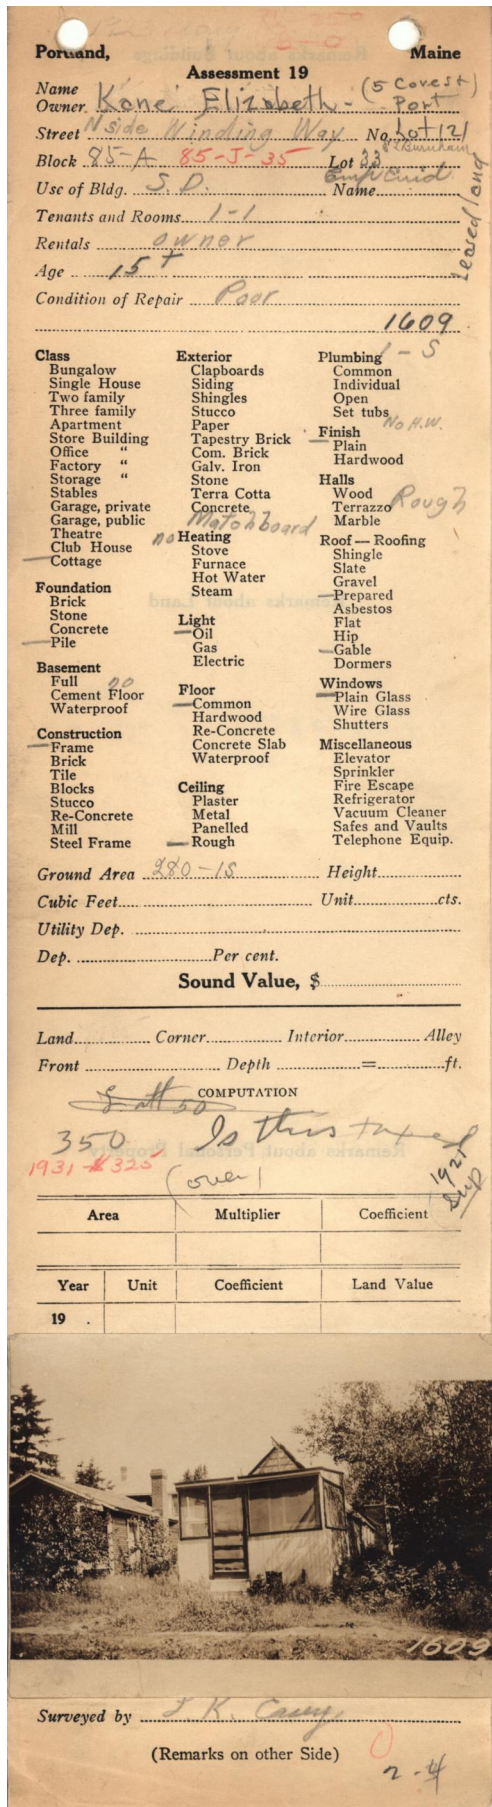 Portland, Maine
Assessment 19
Name
Owner Kane Elizabeth - (5 Cove st) Port
Street N side Winding Way No. Lot 121
Block 85-A 85-J-35 Lot 33 Burnham
Use of Bldg. S.D. Name
leased land
Tenants and Rooms 1-1
Rentals owner
Age 15+
Condition of Repair Poor
1609
Class
Bungalow
Single House
Two family
Three family
Apartment
Store Building
Office "
Factory "
Storage "
Stables
Garage, private
Garage, public
Theatre
Club House
Cottage
Foundation
Brick
Stone
Concrete
Pile
Basement
Full no
Cement Floor
Waterproof
Construction
Frame
Brick
Tile
Blocks
Stucco
Re-Concrete
Mill
Steel Frame
Exterior
Clapboards
Siding
Shingles
Stucco
Paper
Tapestry Brick
Com. Brick
Galv. Iron
Stone
Terra Cotta
Concrete
Matchboard
no Heating
Stove
Furnace
Hot Water
Steam
Light
Oil
Gas
Electric
Floor
Common
Hardwood
Re-Concrete
Concrete Slab
Waterproof
Ceiling
Plaster
Metal
Panelled
Rough
Plumbing 1-S
Common
Individual
Open
Set tubs
No H.W.
Finish
Plain
Hardwood
Halls
Wood
Terrazzo Rough
Marble
Roof — Roofing
Shingle
Slate
Gravel
Prepared
Asbestos
Flat
Hip
Gable
Dormers
Windows
Plain Glass
Wire Glass
Shutters
Miscellaneous
Elevator
Sprinkler
Fire Escape
Refrigerator
Vacuum Cleaner
Safes and Vaults
Telephone Equip.
Ground Area 280-1S Height
Cubic Feet Unit cts.
Utility Dep.
Dep. Per cent.
Sound Value, $
Land Corner Interior Alley
Front Depth = ft.
COMPUTATION
350 Is this taxed
1931 $325 (over) 1921 Sup
Area Multiplier Coefficient
Year Unit Coefficient Land Value
19 .
1609
Surveyed by K. Casey
(Remarks on other Side)
2-4